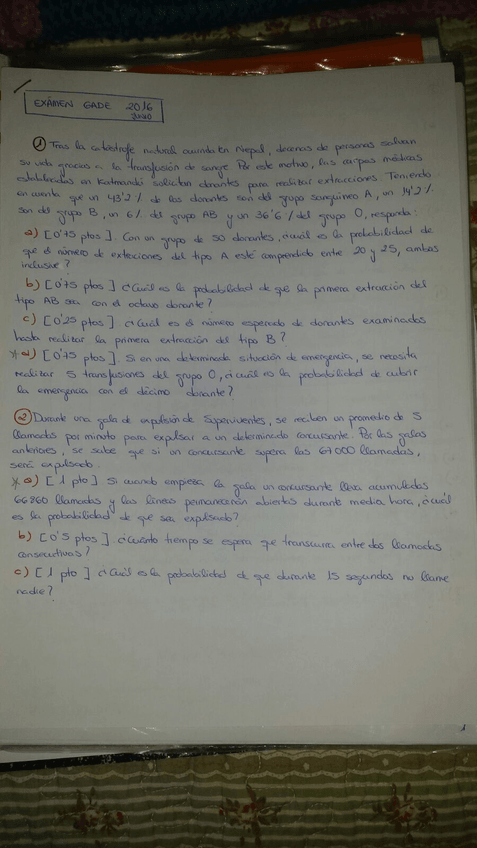 EXÁMEN GADE 2016
JUNIO
① Tras la catástrofe natural ocurrida en Nepal, decenas de personas salvan
su vida gracias a la transfusión de sangre. Por este motivo, los cuerpos médicos
establecidos en Katmandú solicitan donantes para realizar extracciones. Teniendo
en cuenta que un 43'2% de los donantes son del grupo sanguíneo A, un 14'2%
son del grupo B, un 6% del grupo AB y un 36'6% del grupo O, responda:
a) [0'75 ptos]. Con un grupo de 50 donantes, ¿cuál es la probabilidad de
que el número de extracciones del tipo A esté comprendido entre 20 y 25, ambos
inclusive?
b) [0'75 ptos] ¿Cuál es la probabilidad de que la primera extracción del
tipo AB sea con el octavo donante?
c) [0'25 ptos] ¿Cuál es el número esperado de donantes examinados
hasta realizar la primera extracción del tipo B?
* d) [0'75 ptos]. Si en una determinada situación de emergencia, se necesita
realizar 5 transfusiones del grupo O, ¿cuál es la probabilidad de cubrir
la emergencia con el décimo donante?
② Durante una gala de expulsión de Supervivientes, se reciben un promedio de 5
llamadas por minuto para expulsar a un determinado concursante. Por las galas
anteriores, se sabe que si un concursante supera las 67000 llamadas,
será expulsado.
* a) [1 pto] Si cuando empieza la gala un concursante lleva acumuladas
66860 llamadas y las líneas permanecerán abiertas durante media hora, ¿cuál
es la probabilidad de que sea expulsado?
b) [0'5 ptos]. ¿Cuánto tiempo se espera que transcurra entre dos llamadas
consecutivas?
c) [1 pto] ¿Cuál es la probabilidad de que durante 15 segundos no llame
nadie?